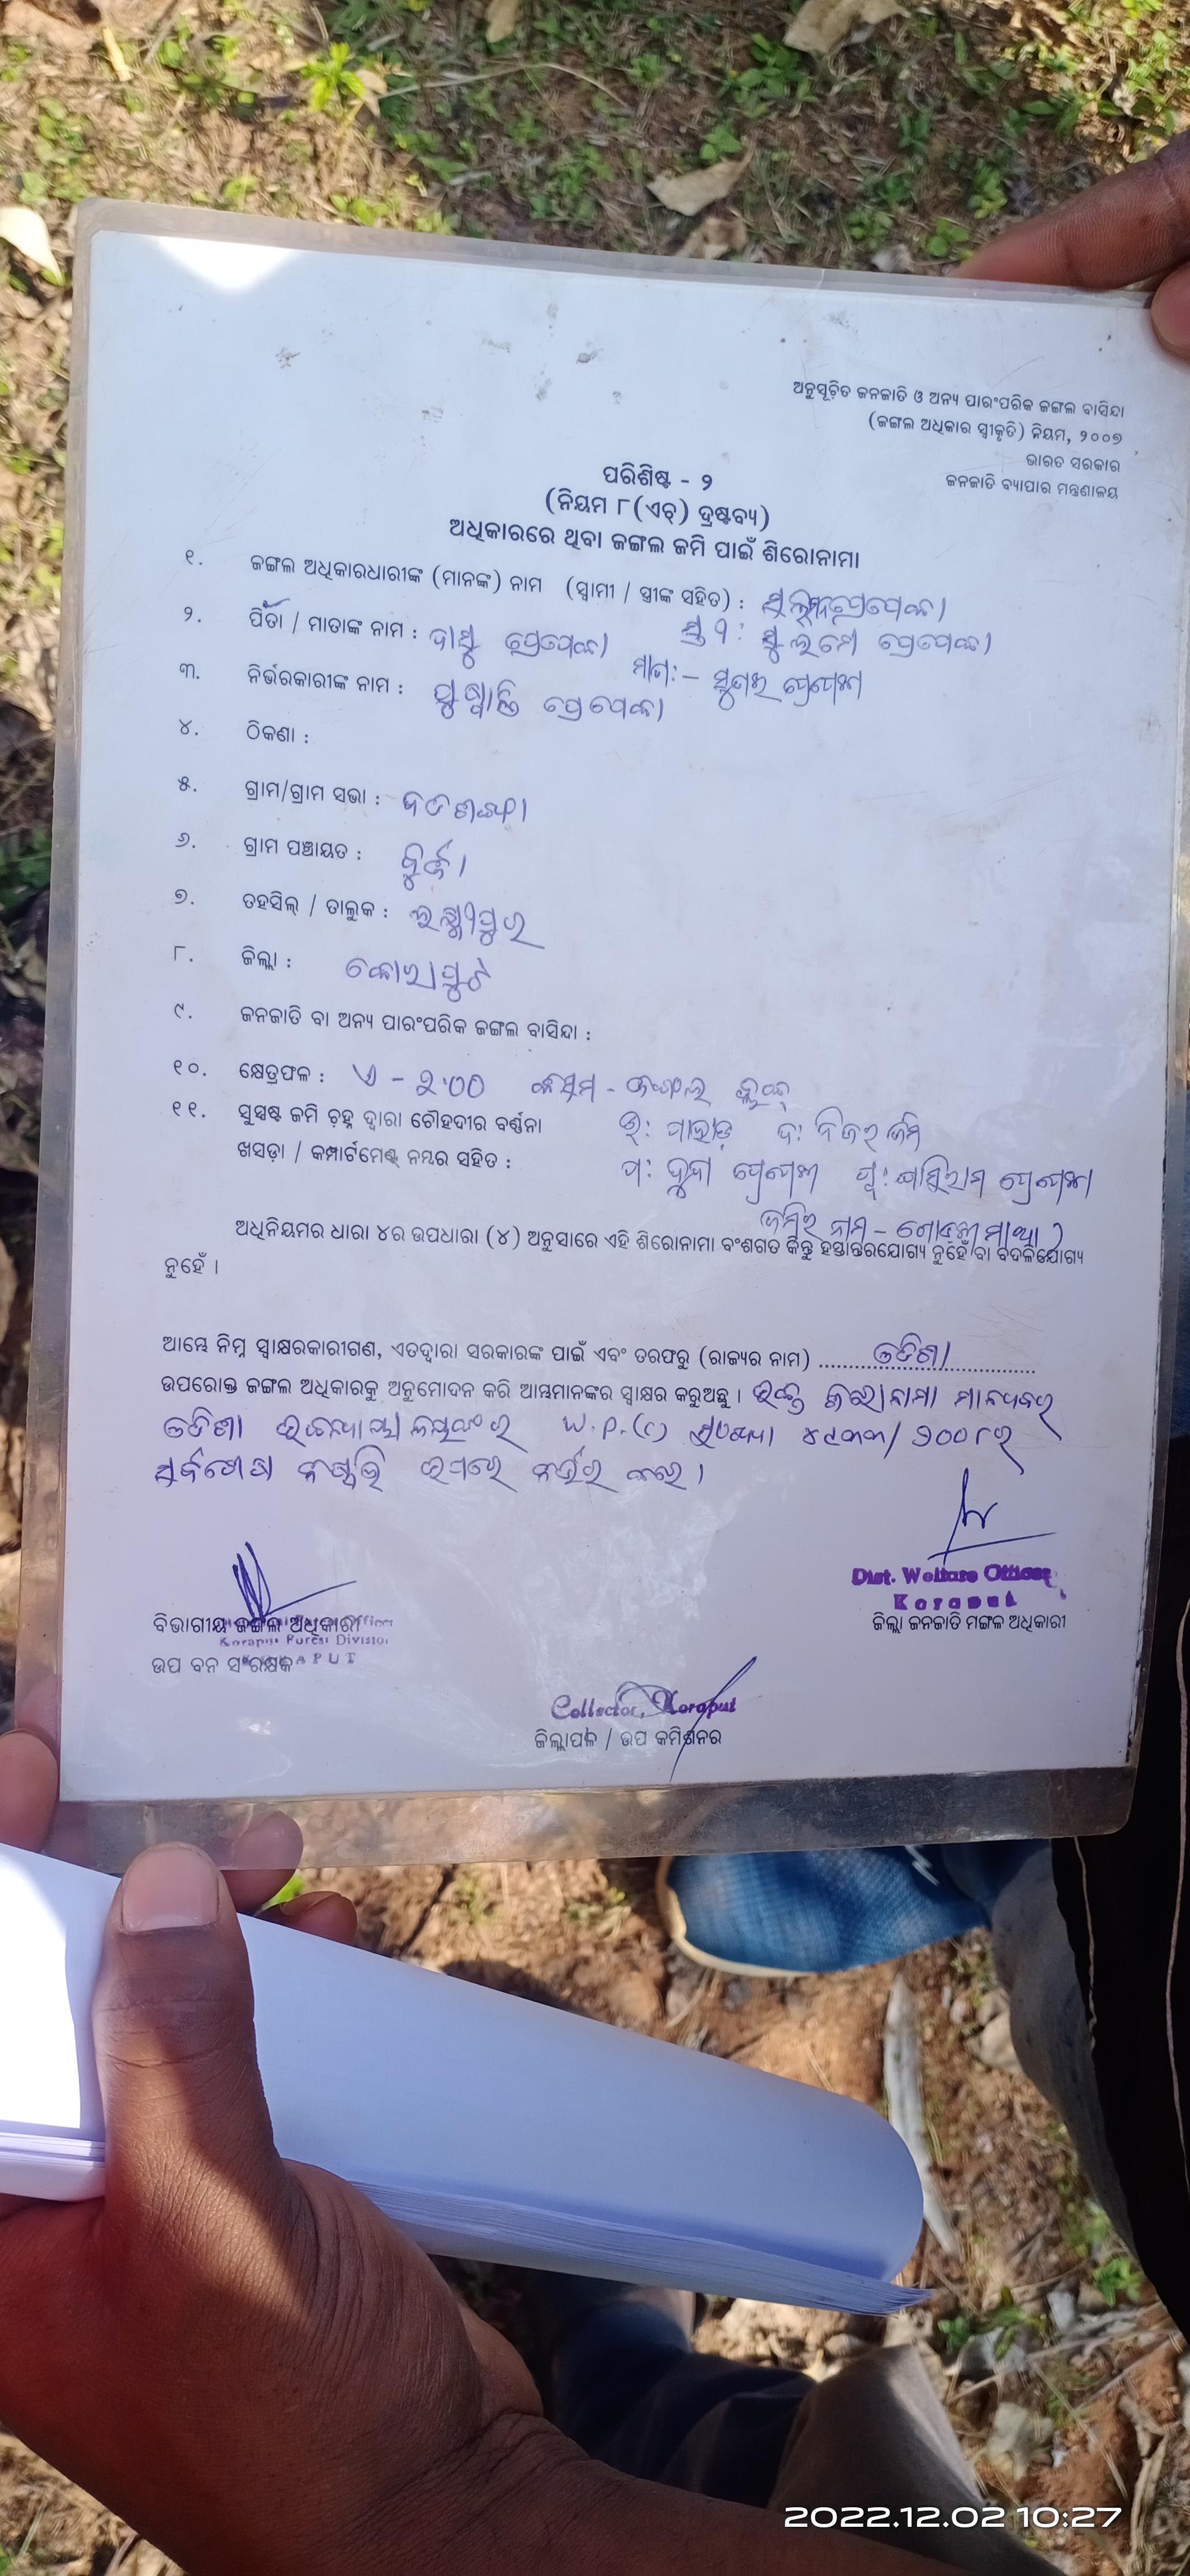 ଅନୁସୂଚିତ ଜନଜାତି ଓ ଅନ୍ୟ ପାରଂପରିକ ଜଙ୍ଗଲ ବାସିନ୍ଦା
(ଜଙ୍ଗଲ ଅଧିକାର ସ୍ୱୀକୃତି) ନିୟମ, ୨୦୦୭
ଭାରତ ସରକାର
ଜନଜାତି ବ୍ୟାପାର ମନ୍ତ୍ରଣାଳୟ
ପରିଶିଷ୍ଟ - ୨
(ନିୟମ ୮(ଏଚ୍) ଦ୍ରଷ୍ଟବ୍ୟ)
ଅଧିକାରରେ ଥିବା ଜଙ୍ଗଲ ଜମି ପାଇଁ ଶିରୋନାମା
୧. ଜଙ୍ଗଲ ଅଧିକାରଧାରୀଙ୍କ (ମାନଙ୍କ) ନାମ (ସ୍ୱାମୀ / ସ୍ତ୍ରୀଙ୍କ ସହିତ) :
୨. ପିତା / ମାତାଙ୍କ ନାମ : ଦାସୁ ପ୍ରେପେକା ସ୍ତ୍ରୀ :
୩. ନିର୍ଭରକାରୀଙ୍କ ନାମ :
୪. ଠିକଣା :
୫. ଗ୍ରାମ/ଗ୍ରାମ ସଭା :
୬. ଗ୍ରାମ ପଞ୍ଚାୟତ :
୭. ତହସିଲ୍ / ତାଲୁକ : ଲକ୍ଷ୍ମୀପୁର
୮. ଜିଲ୍ଲା : କୋରାପୁଟ
୯. ଜନଜାତି ବା ଅନ୍ୟ ପାରଂପରିକ ଜଙ୍ଗଲ ବାସିନ୍ଦା :
୧୦. କ୍ଷେତ୍ରଫଳ : ଏ - ୨.୦୦ କିସମ - ଜଙ୍ଗଲ
୧୧. ସୁସ୍ପଷ୍ଟ ଜମି ଚିହ୍ନ ଦ୍ୱାରା ଚୌହଦୀର ବର୍ଣ୍ଣନା ଉ: ପାହାଡ଼ ଦ: ନିଜର ଜମି
ଖସଡ଼ା / କମ୍ପାର୍ଟମେଣ୍ଟ୍ ନମ୍ବର ସହିତ : ପ:
ଜମିର ନାମ -
ଅଧିନିୟମର ଧାରା ୪ର ଉପଧାରା (୪) ଅନୁସାରେ ଏହି ଶିରୋନାମା ବଂଶଗତ କିନ୍ତୁ ହସ୍ତାନ୍ତରଯୋଗ୍ୟ ନୁହେଁ ବା ବଦଳିଯୋଗ୍ୟ
ନୁହେଁ ।
ଆମ୍ଭେ ନିମ୍ନ ସ୍ୱାକ୍ଷରକାରୀଗଣ, ଏତଦ୍ୱାରା ସରକାରଙ୍କ ପାଇଁ ଏବଂ ତରଫରୁ (ରାଜ୍ୟର ନାମ) ଓଡିଶା
ଉପରୋକ୍ତ ଜଙ୍ଗଲ ଅଧିକାରକୁ ଅନୁମୋଦନ କରି ଆମ୍ଭମାନଙ୍କର ସ୍ୱାକ୍ଷର କରୁଅଛୁ । ଉକ୍ତ ଶିରୋନାମା ମାନ୍ୟବର
ଓଡିଶା ଉଚ୍ଚନ୍ୟାୟାଳୟଙ୍କ ର W.P.(C) ସଂଖ୍ୟା ୪୯୩୩/୨୦୦୮ର
ସର୍ବଶେଷ ନିଷ୍ପତ୍ତି ଉପରେ ନିର୍ଭର କରେ ।
Dist. Welfare Officer
Koraput
ବିଭାଗୀୟ ଜଙ୍ଗଲ ଅଧିକାରୀ ଜିଲ୍ଲା ଜନଜାତି ମଙ୍ଗଳ ଅଧିକାରୀ
Koraput Forest Division
ଉପ ବନ ସଂରକ୍ଷକ
Collector, Koraput
ଜିଲ୍ଲାପାଳ / ଉପ କମିଶନର
2022.12.02 10:27